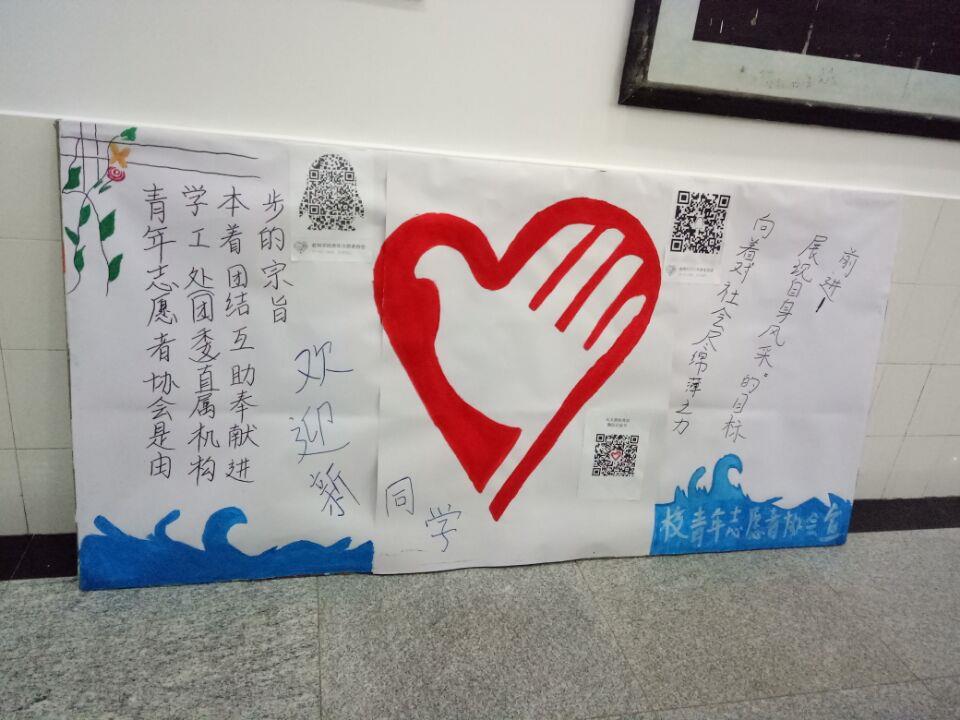 青年志愿者协会是由
学工处团委直属机构
本着团结互助奉献进
步的宗旨
欢迎新
同学
向着对社会尽绵薄之力
展现自身风采”的目标
前进!
校青年志愿者协会宣